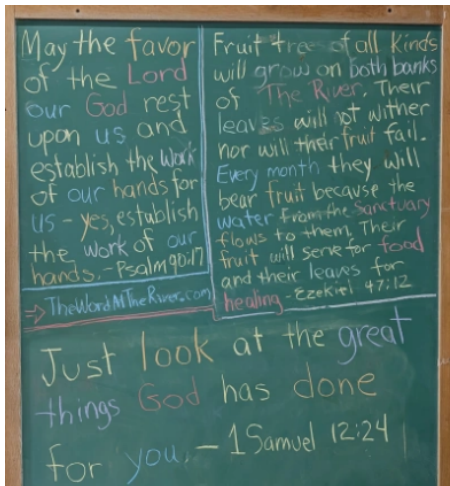 May the favor
of the Lord
our God rest
upon us and
establish the work
of our hands for
us - yes, establish
the work of our
hands. - Psalm 90:17
Fruit trees of all kinds
will grow on both banks
of The River. Their
leaves will not wither
nor will their fruit fail.
Every month they will
bear fruit because the
water from the Sanctuary
flows to them. Their
fruit will serve for food
and their leaves for
healing - Ezekiel 47:12
⇒ TheWordAtTheRiver.com
Just look at the great
things God has done
for you. - 1 Samuel 12:24